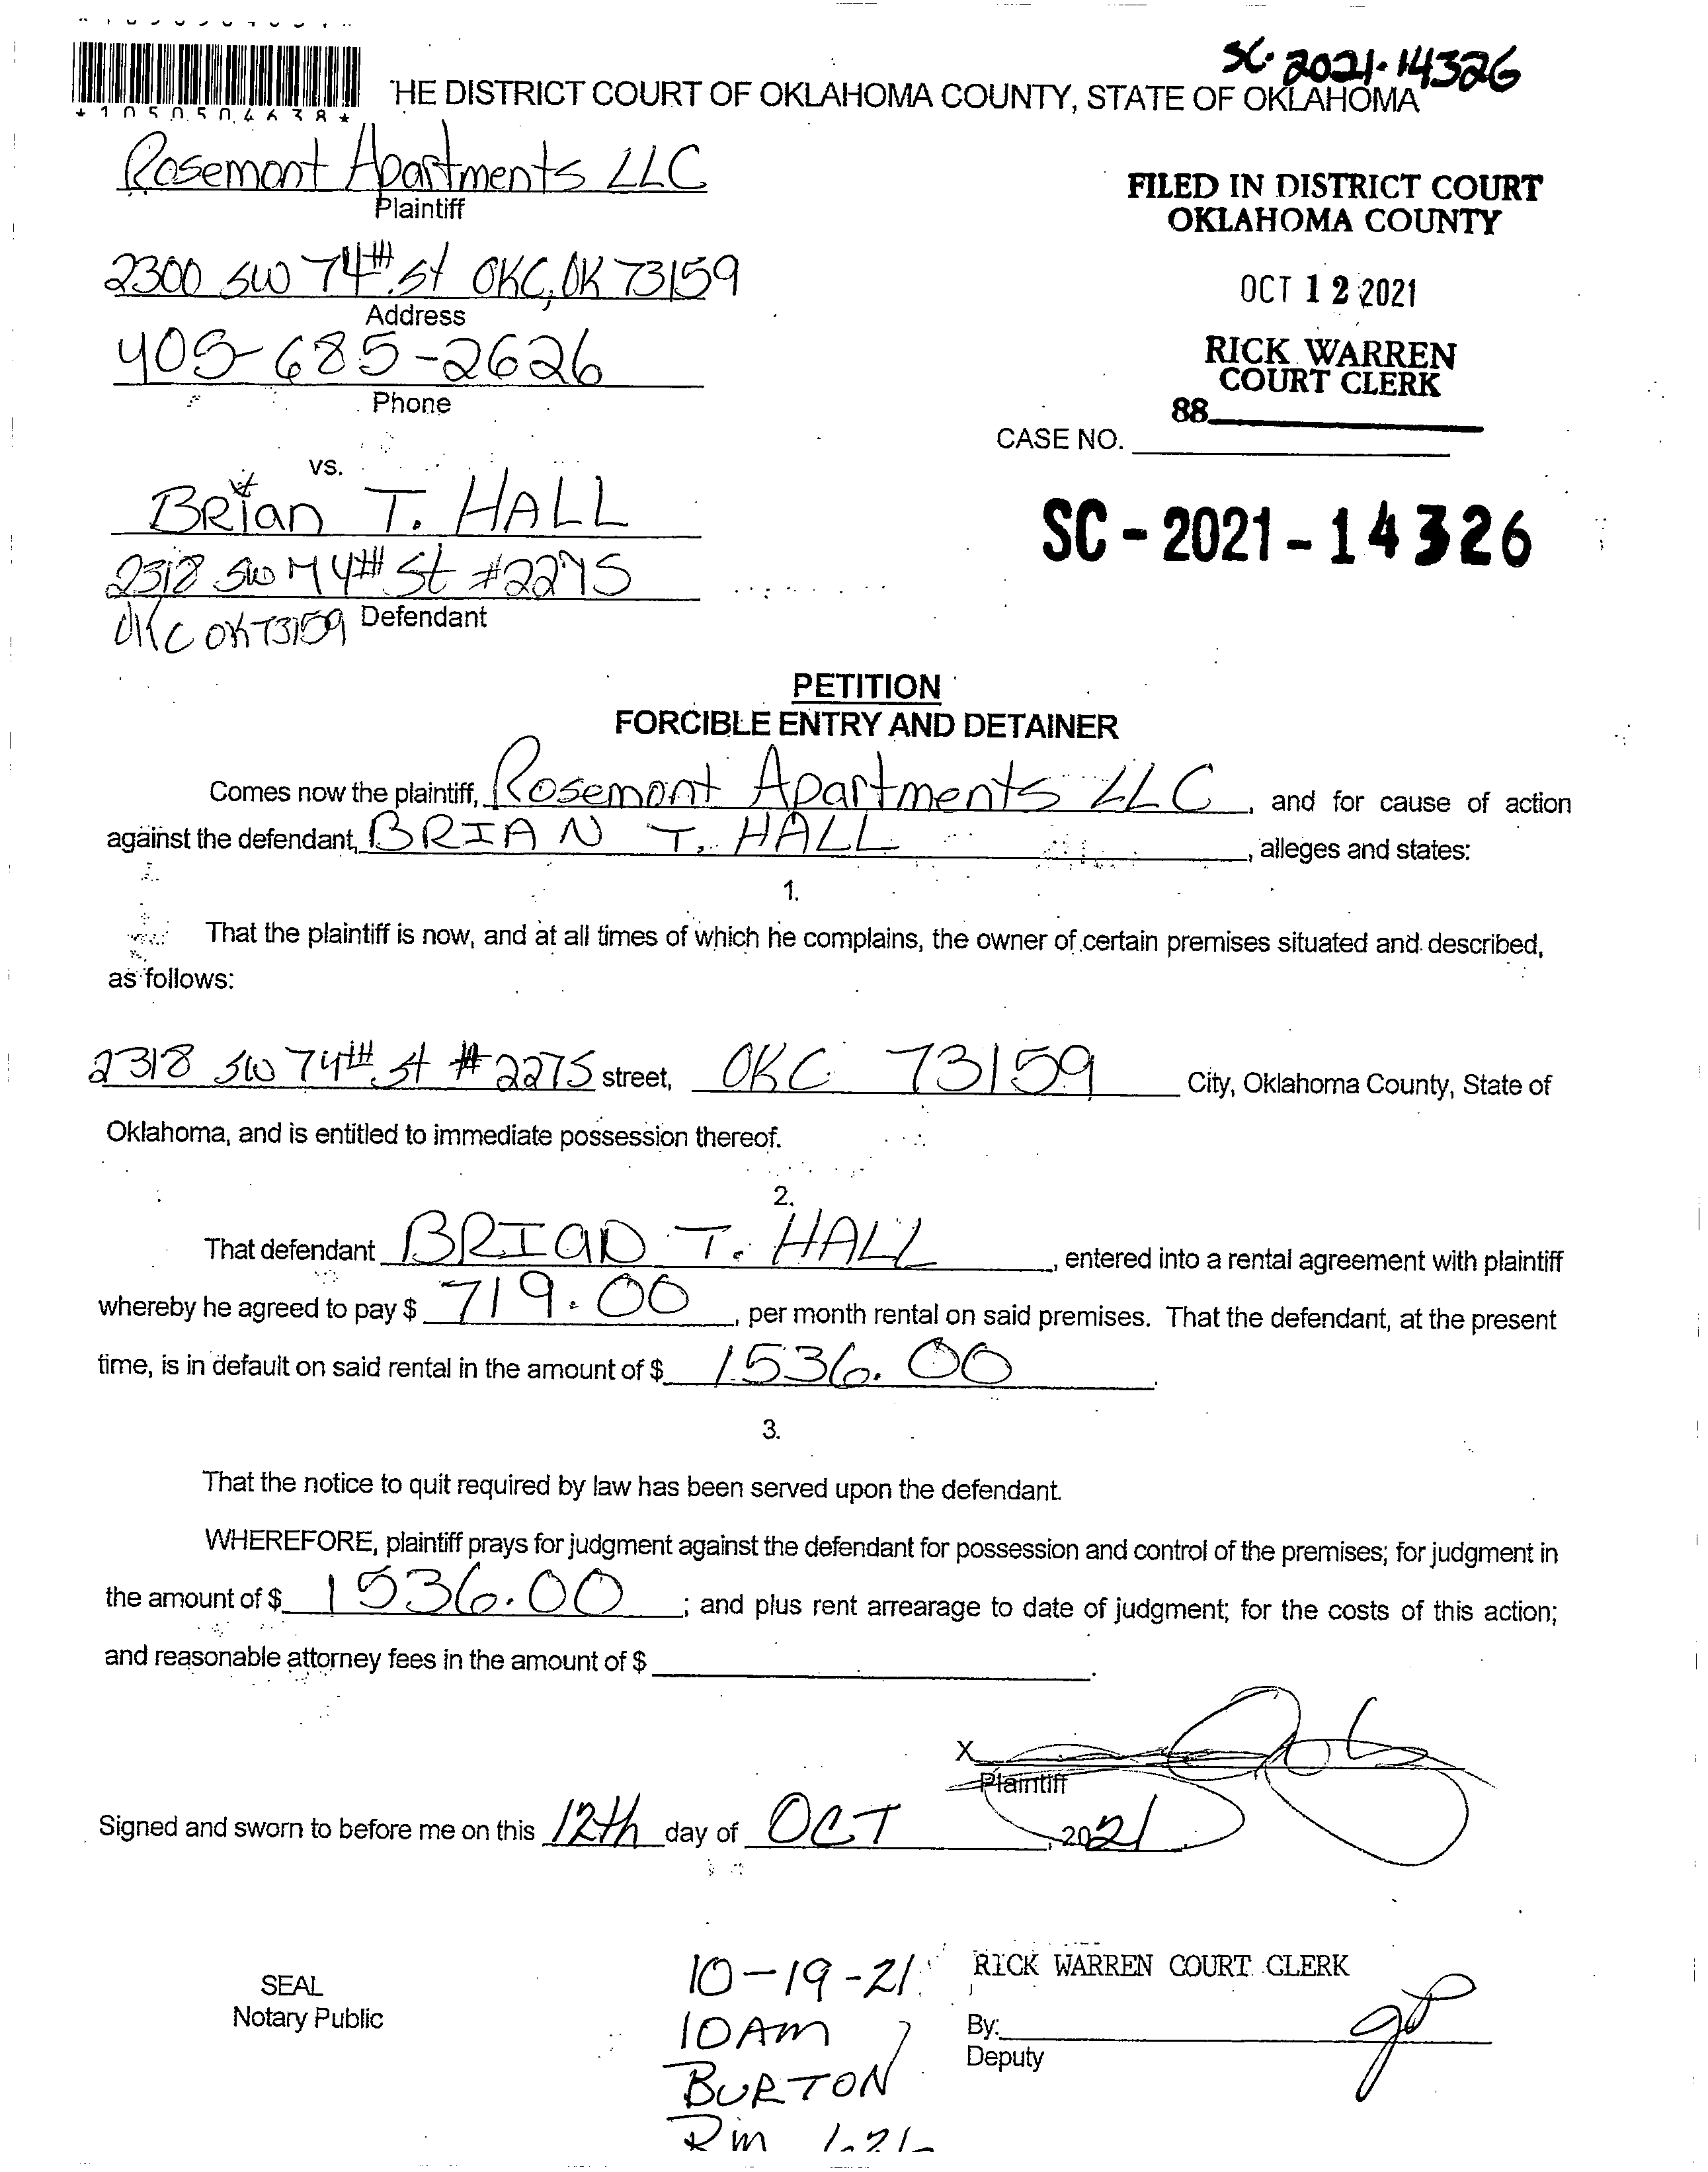 SC-2021-14326
HE DISTRICT COURT OF OKLAHOMA COUNTY, STATE OF OKLAHOMA
Rosemont Apartments LLC
Plaintiff
FILED IN DISTRICT COURT
OKLAHOMA COUNTY
2300 SW 74th St OKC, OK 73159
Address
OCT 12 2021
405-685-2626
Phone
RICK WARREN
COURT CLERK
88
CASE NO.
vs.
Brian T. HALL
SC-2021-14326
2318 SW 74th St #2275
OKC OK 73159 Defendant
PETITION
FORCIBLE ENTRY AND DETAINER
Comes now the plaintiff, Rosemont Apartments LLC, and for cause of action
against the defendant, BRIAN T. HALL, alleges and states:
1.
That the plaintiff is now, and at all times of which he complains, the owner of certain premises situated and described,
as follows:
2318 SW 74th St #2275 street, OKC 73159 City, Oklahoma County, State of
Oklahoma, and is entitled to immediate possession thereof.
2.
That defendant BRIAN T. HALL, entered into a rental agreement with plaintiff
whereby he agreed to pay $ 719.00, per month rental on said premises. That the defendant, at the present
time, is in default on said rental in the amount of $ 1536.00.
3.
That the notice to quit required by law has been served upon the defendant.
WHEREFORE, plaintiff prays for judgment against the defendant for possession and control of the premises; for judgment in
the amount of $ 1536.00; and plus rent arrearage to date of judgment; for the costs of this action;
and reasonable attorney fees in the amount of $ .
X
Plaintiff
Signed and sworn to before me on this 12th day of OCT, 2021
SEAL
Notary Public
10-19-21
10AM
BURTON
RICK WARREN COURT CLERK
By:
Deputy